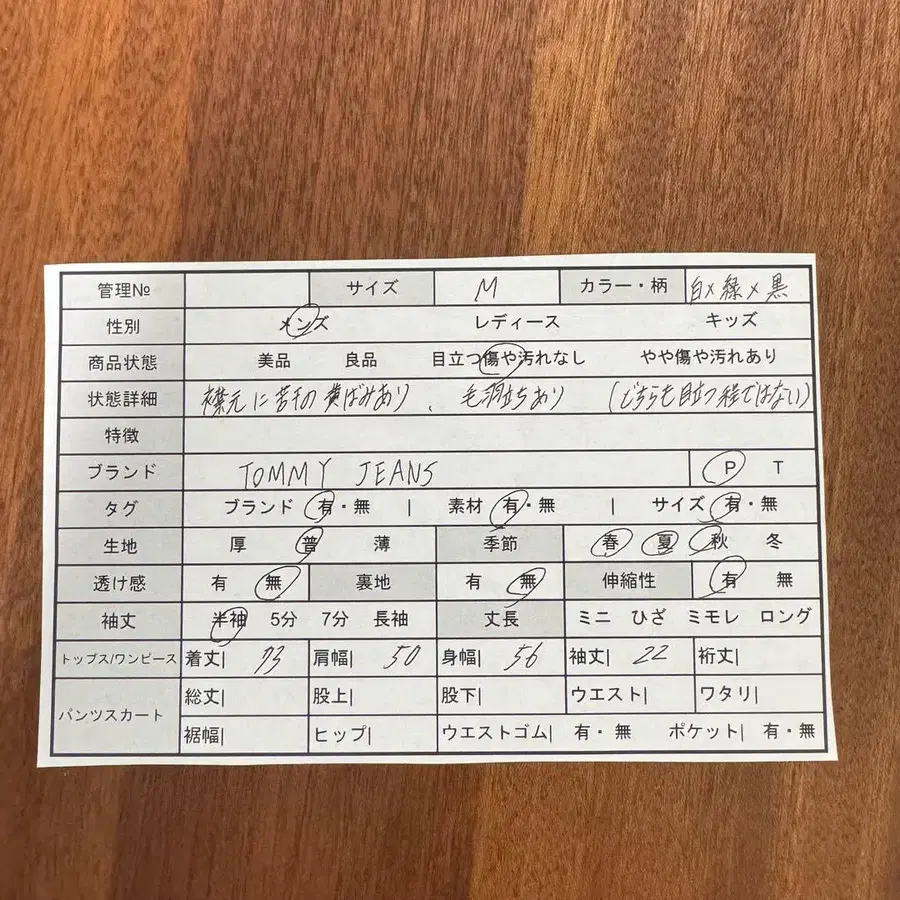 管理№ サイズ M カラー・柄 白×緑×黒
性別 メンズ レディース キッズ
商品状態 美品 良品 目立つ傷や汚れなし やや傷や汚れあり
状態詳細 襟元に若干の黄ばみあり、毛羽立ちあり (どちらも目立つ程ではない)
特徴
ブランド TOMMY JEANS P T
タグ ブランド 有・無 | 素材 有・無 | サイズ 有・無
生地 厚 普 薄 季節 春 夏 秋 冬
透け感 有 無 裏地 有 無 伸縮性 有 無
袖丈 半袖 5分 7分 長袖 丈長 ミニ ひざ ミモレ ロング
トップス/ワンピース 着丈| 73 肩幅| 50 身幅| 56 袖丈| 22 裄丈|
パンツスカート 総丈| 股上| 股下| ウエスト| ワタリ|
裾幅| ヒップ| ウエストゴム| 有・無 ポケット| 有・無